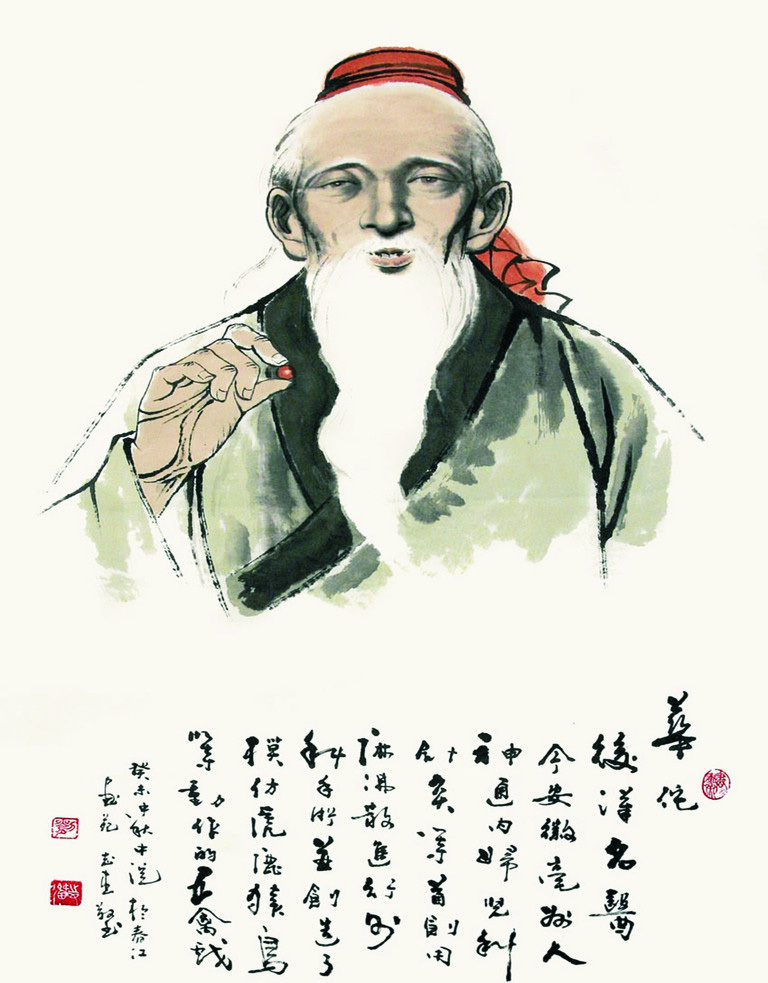 華佗
後漢名醫
今安徽亳州人
神通内婦児科
針灸等首創用
麻沸散進行外
科手術並創造了
模仿虎鹿猿鳥
等動作的五禽戲
癸未中秋中浣於春江
畫苑